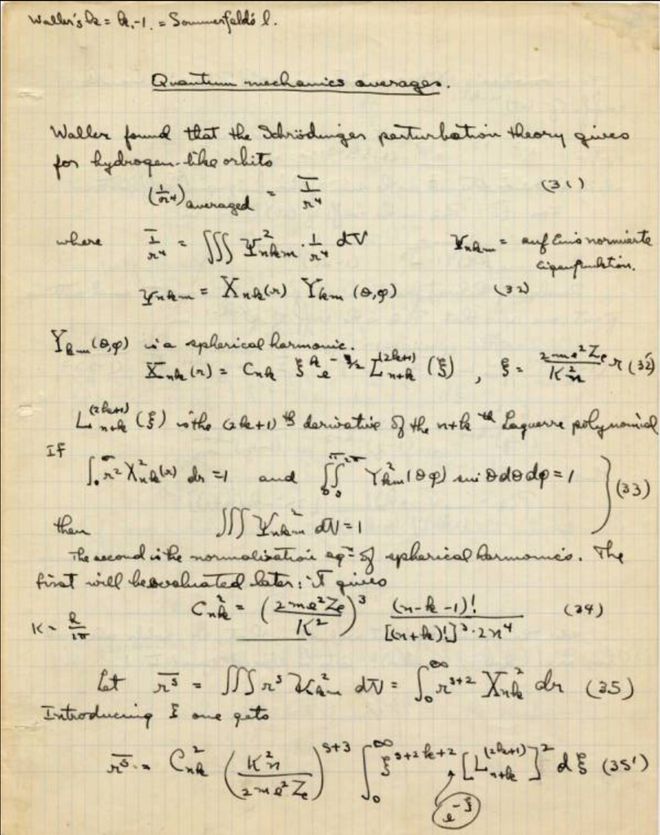 Waller's k = k₁-1. = Sommerfeld's l.
Quantum mechanics averages.
Waller found that the Schrödinger perturbation theory gives
for hydrogen-like orbits
(1/r⁴) averaged = \overline{1/r⁴} (31)
where \overline{1/r⁴} = ∭ ψ²nkm · 1/r⁴ dV ψnkm = auf Eins normierte
Eigenfunktion.
ψnkm = Xnk(r) Ykm (θ,φ) (32)
Ykm (θ,φ) is a spherical harmonic.
Xnk(r) = Cnk ξ^k e^{-ξ/2} L_{n+k}^{(2k+1)} (ξ) , ξ = 2me²Z_e/K²n r (32')
L_{n+k}^{(2k+1)} (ξ) is the (2k+1)th derivative of the n+k th Laguerre polynomial
If
∫₀^∞ r² X²nk(r) dr = 1 and ∫₀^π∫₀^{2π} Y²km(θφ) sin θ dθ dφ = 1 } (33)
then ∭ ψ²nkm dV = 1
The second is the normalization eqⁿ of spherical harmonics. The
first will be evaluated later; it gives
K = h/2π C²nk = (2me²Z_e/K²)³ (n-k-1)!/[(n+k)!]³·2n⁴ (34)
Let \overline{r^s} = ∭ r^s ψ²nkm dV = ∫₀^∞ r^{s+2} X²nk dr (35)
Introducing ξ one gets
\overline{r^s} = C²nk (K²n/2me²Z_e)^{s+3} ∫₀^∞ ξ^{s+2k+2} [L_{n+k}^{(2k+1)}]² dξ (35')
e^{-ξ}